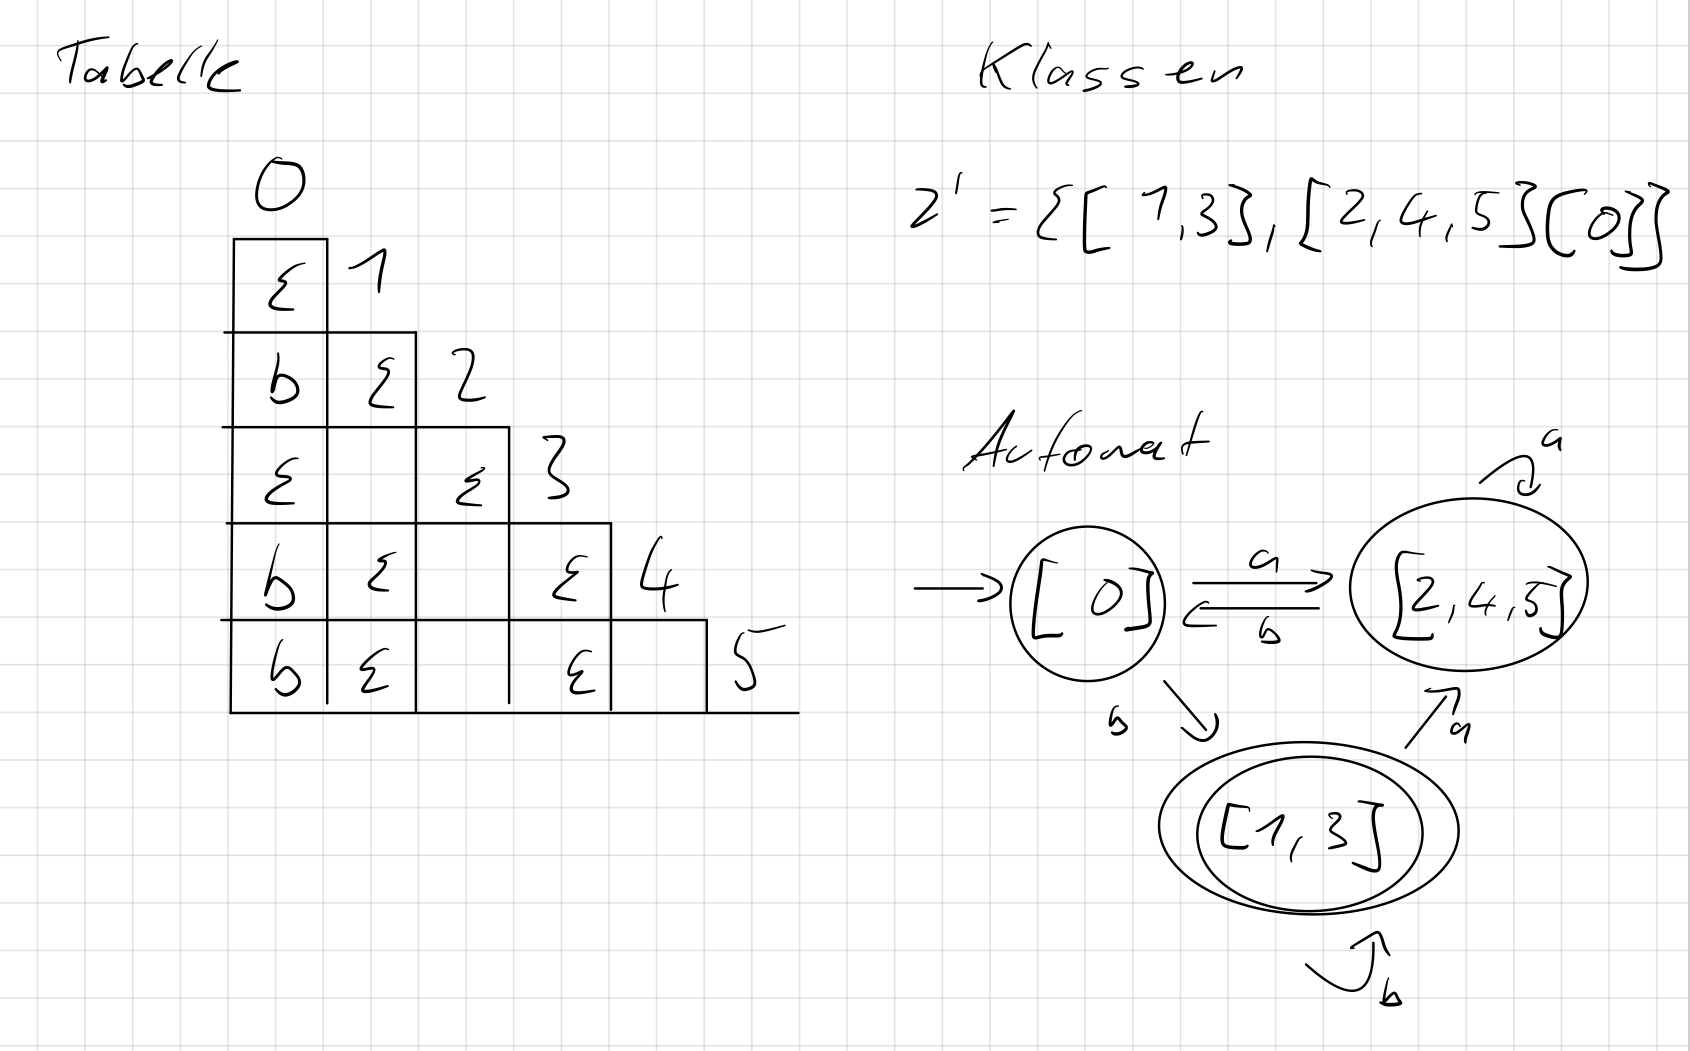 Tabelle
0
ε 1
b ε 2
ε ε 3
b ε ε 4
b ε ε 5
Klassen
2' = {[1,3], [2,4,5][0]}
Automat
a
[0] a [2,4,5]
b
b a
[1,3]
b